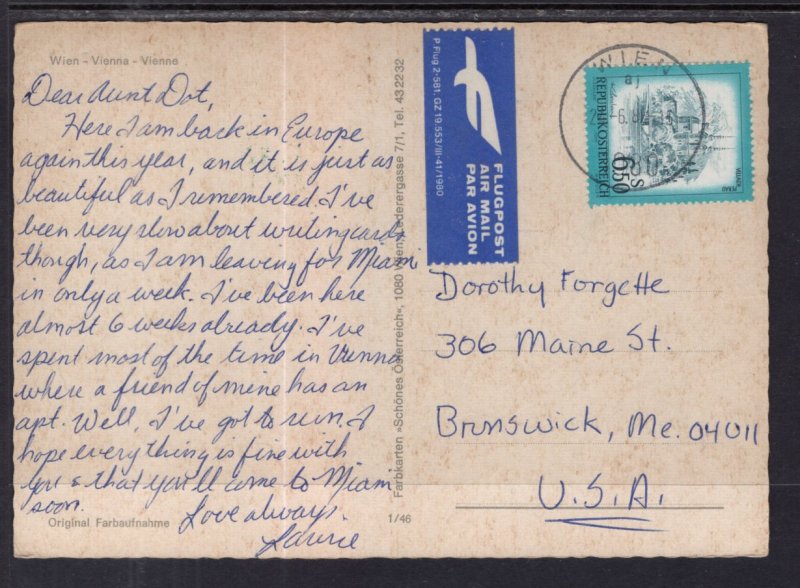 Wien - Vienna - Vienne
Dear Aunt Dot,
Here I am back in Europe
again this year, and it is just as
beautiful as I remembered. I've
been very slow about writing cards
though, as I am leaving for Miami
in only a week. I've been here
almost 6 weeks already. I've
spent most of the time in Vienna
where a friend of mine has an
apt. Well, I've got to run. I
hope everything is fine with
you & that you'll come to Miami
soon.
Love always,
Laurie
Original Farbaufnahme
1/46
Farbkarten »Schönes Österreich«, 1080 Wien, Lederergasse 7/1, Tel. 432232
P Flug 2-581, GZ 19.553/III-41/1980
FLUGPOST
AIR MAIL
PAR AVION
WIEN
REPUBLIK ÖSTERREICH
S 6.50
Dorothy Forgette
306 Maine St.
Brunswick, Me. 04011
U.S.A.